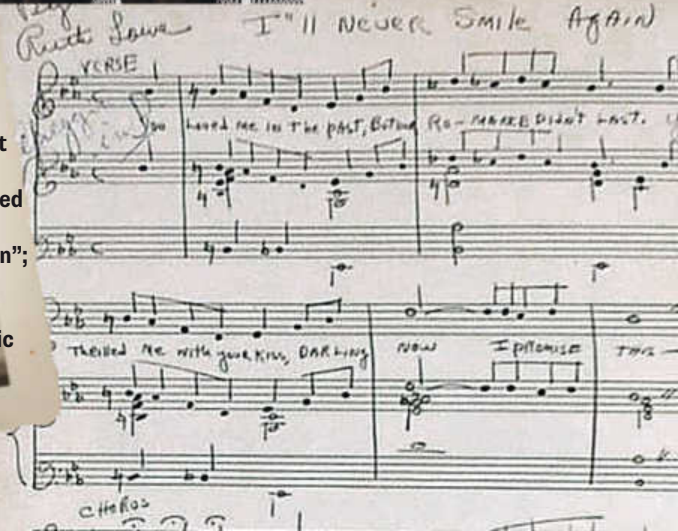 By
Ruth Lowe I"ll Never Smile Again
VERSE
t
ed
n";
ic
You Loved me in The pAst, But our Ro-MANCE DIDN'T LAST.
Thrilled Me with your Kiss, DARLING NOW I promise This —
CHORUS